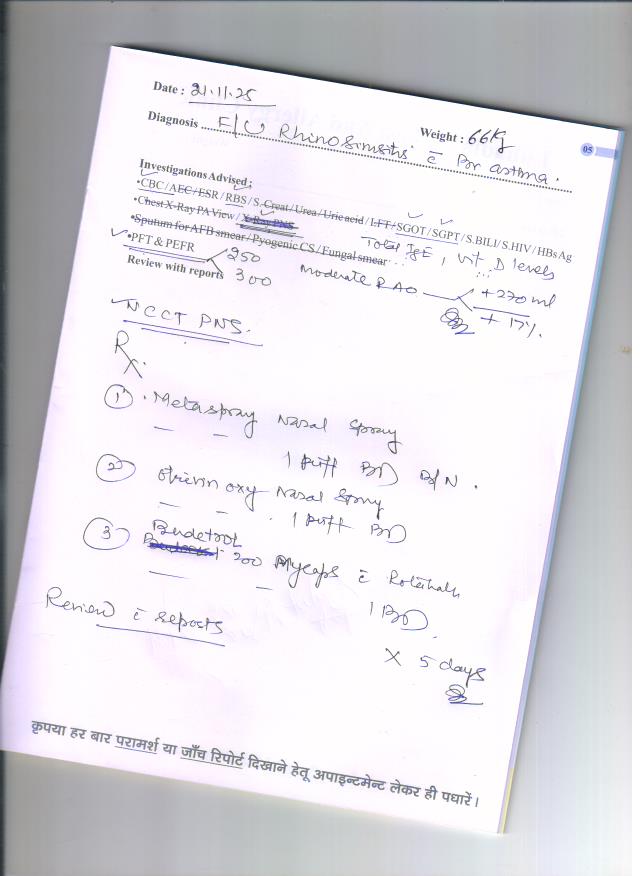 Date : 21.11.25
Diagnosis .. F/U Rhinosinusitis c̄ Br asthma.
Weight : 66Kg
05
Investigations Advised :
•CBC/AEC/ESR/RBS/S.Creat/Urea/Uric acid/LFT/SGOT/SGPT/S.BILI/S.HIV/HBsAg
•Chest X-Ray PA View/X-Ray PNS
•Sputum for AFB smear/Pyogenic CS/Fungal smear...
Total IgE, Vit D levels
•PFT & PEFR 250
300
Review with reports
Moderate RAO + 270 ml
+ 17%.
NCCT PNS.
Rx.
1 . Metaspray Nasal Spray
1 puff BD B/N.
2 Otrivin oxy Nasal Spray
1 puff BD
3 Budetrol
200 c̄ Rotahaler
1 BD
Review c̄ reports
X 5 days
कृपया हर बार परामर्श या जाँच रिपोर्ट दिखाने हेतू अपाइन्टमेन्ट लेकर ही पधारें।